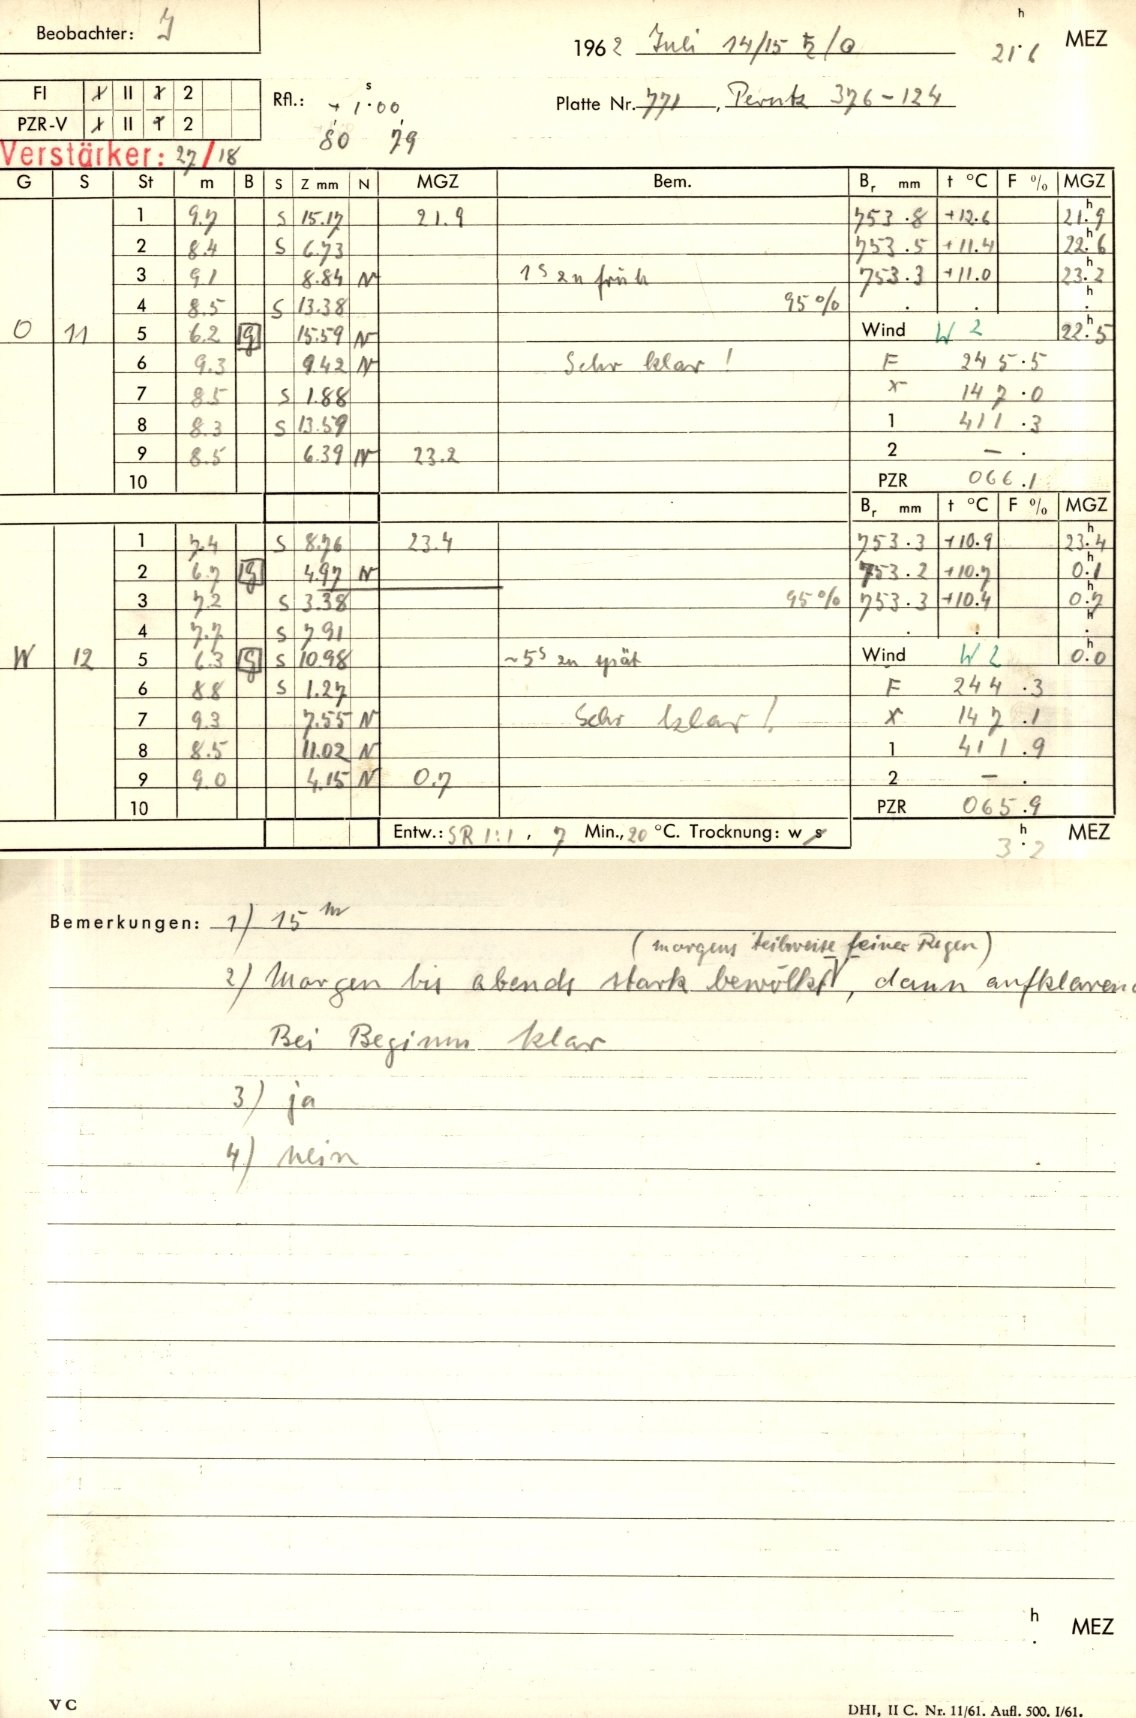 Beobachter: J
1962 Juli 14/15 ♄/☉ 21h.6 MEZ
FI 1 II 1 2
PZR-V 1 II 1 2
Rfl.: + 1s.00
80 79
Platte Nr. 771, Perutz 376-124
Verstärker: 27/18
G S St m B S Z mm N MGZ Bem. Br mm t °C F % MGZ
1 9.7 S 15.17 21.9 753.8 +12.6 21h.9
2 8.4 S 6.73 753.5 +11.4 22h.6
3 9.1 8.84 N 1s zu früh 753.3 +11.0 23h.2
4 8.5 S 13.38 95% . . h.
O 11 5 6.2 g 15.59 N Wind W 2 22h.5
6 9.3 9.42 N Sehr klar! F 245.5
7 8.5 S 1.88 x 147.0
8 8.3 S 13.59 1 411.3
9 8.5 6.39 N 23.2 2 – .
10 PZR 066.1
Br mm t °C F % MGZ
1 7.4 S 8.76 23.4 753.3 +10.9 23h.4
2 6.7 g 4.97 N 753.2 +10.7 0h.1
3 7.2 S 3.38 95% 753.3 +10.4 0h.7
4 7.7 S 7.91 . . h.
W 12 5 6.3 g S 10.98 ~5s zu spät Wind W 2 0h.0
6 8.8 S 1.27 F 244.3
7 9.3 7.55 N Sehr klar! x 147.1
8 8.5 11.02 N 1 411.9
9 9.0 4.15 N 0.7 2 – .
10 PZR 065.9
Entw.: SR 1:1, 7 Min., 20 °C. Trocknung: w s 3h.2 MEZ
Bemerkungen: 1) 15 m
(morgens teilweise feiner Regen)
2) Morgen bis abends stark bewölkt, dann aufklarend
Bei Beginn klar
3) ja
4) nein
h. MEZ
V C
DHI, II C. Nr. 11/61. Aufl. 500. I/61.